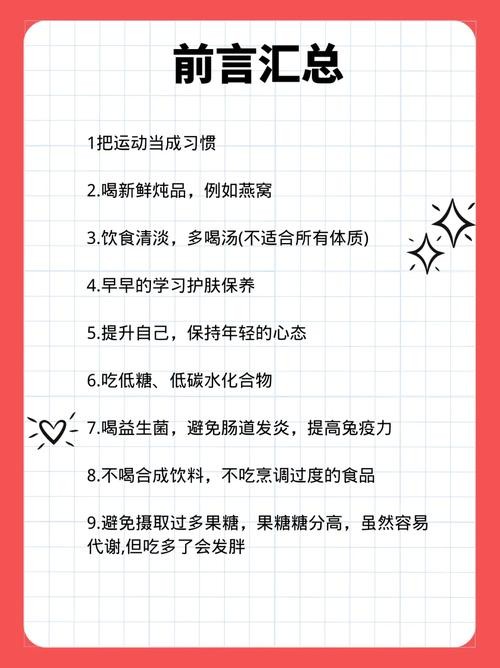 前言汇总
1把运动当成习惯
2.喝新鲜炖品，例如燕窝
3.饮食清淡，多喝汤(不适合所有体质)
4.早早的学习护肤保养
5.提升自己，保持年轻的心态
6.吃低糖、低碳水化合物
7.喝益生菌，避免肠道发炎，提高兔疫力
8.不喝合成饮料，不吃烹调过度的食品
9.避免摄取过多果糖，果糖糖分高，虽然容易
代谢,但吃多了会发胖